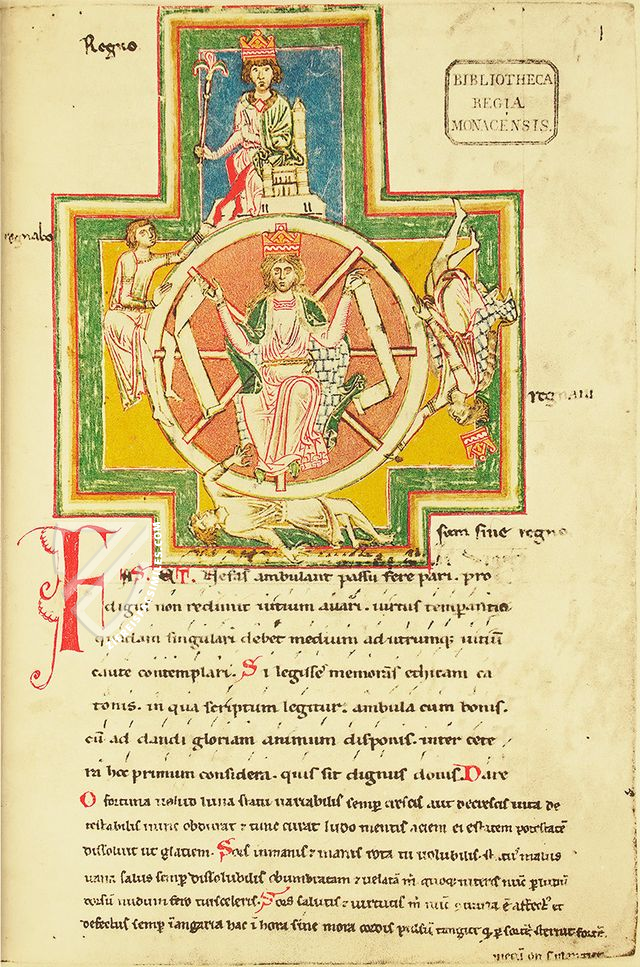 Regno
I
BIBLIOTHECA
REGIA
MONACENSIS.
regnabo
regnavi
sum sine regno
FAS ET Nefas ambulant passu fere pari. pro
digus non redimit uitium auari. uirtus temperantia
quadam singulari debet medium ad utrumq; uitiū
caute contemplari. Si legisse memoras ethicam ca
tonis. in qua scriptum legitur. ambula cum bonis.
cū ad dandi gloriam animum disponis. inter cete
ra hoc primum considera. quis sit dignus donis. Dare
O fortuna uelud luna statu uariabilis semp crescis aut decrescis uita de
testabilis nunc obdurat & tunc curat ludo mentis aciem egestatem potestatē
dissoluit ut glaciem. Sors inmanis & inanis rota tu uolubilis. statꝰ malus
uana salus semp dissolubilis obumbratam & uelatā m̄ quoq; niteris nūc p ludū
dorsum nudum fero tui sceleris. Sors salutis & uirtutis m̄ nūc ꝯtraria ē affectꝰ et
defectus semp in angaria hac ī hora sine mora cordis pulsum tangite q̄ p sortē sternit fortē.
mecū om̄s